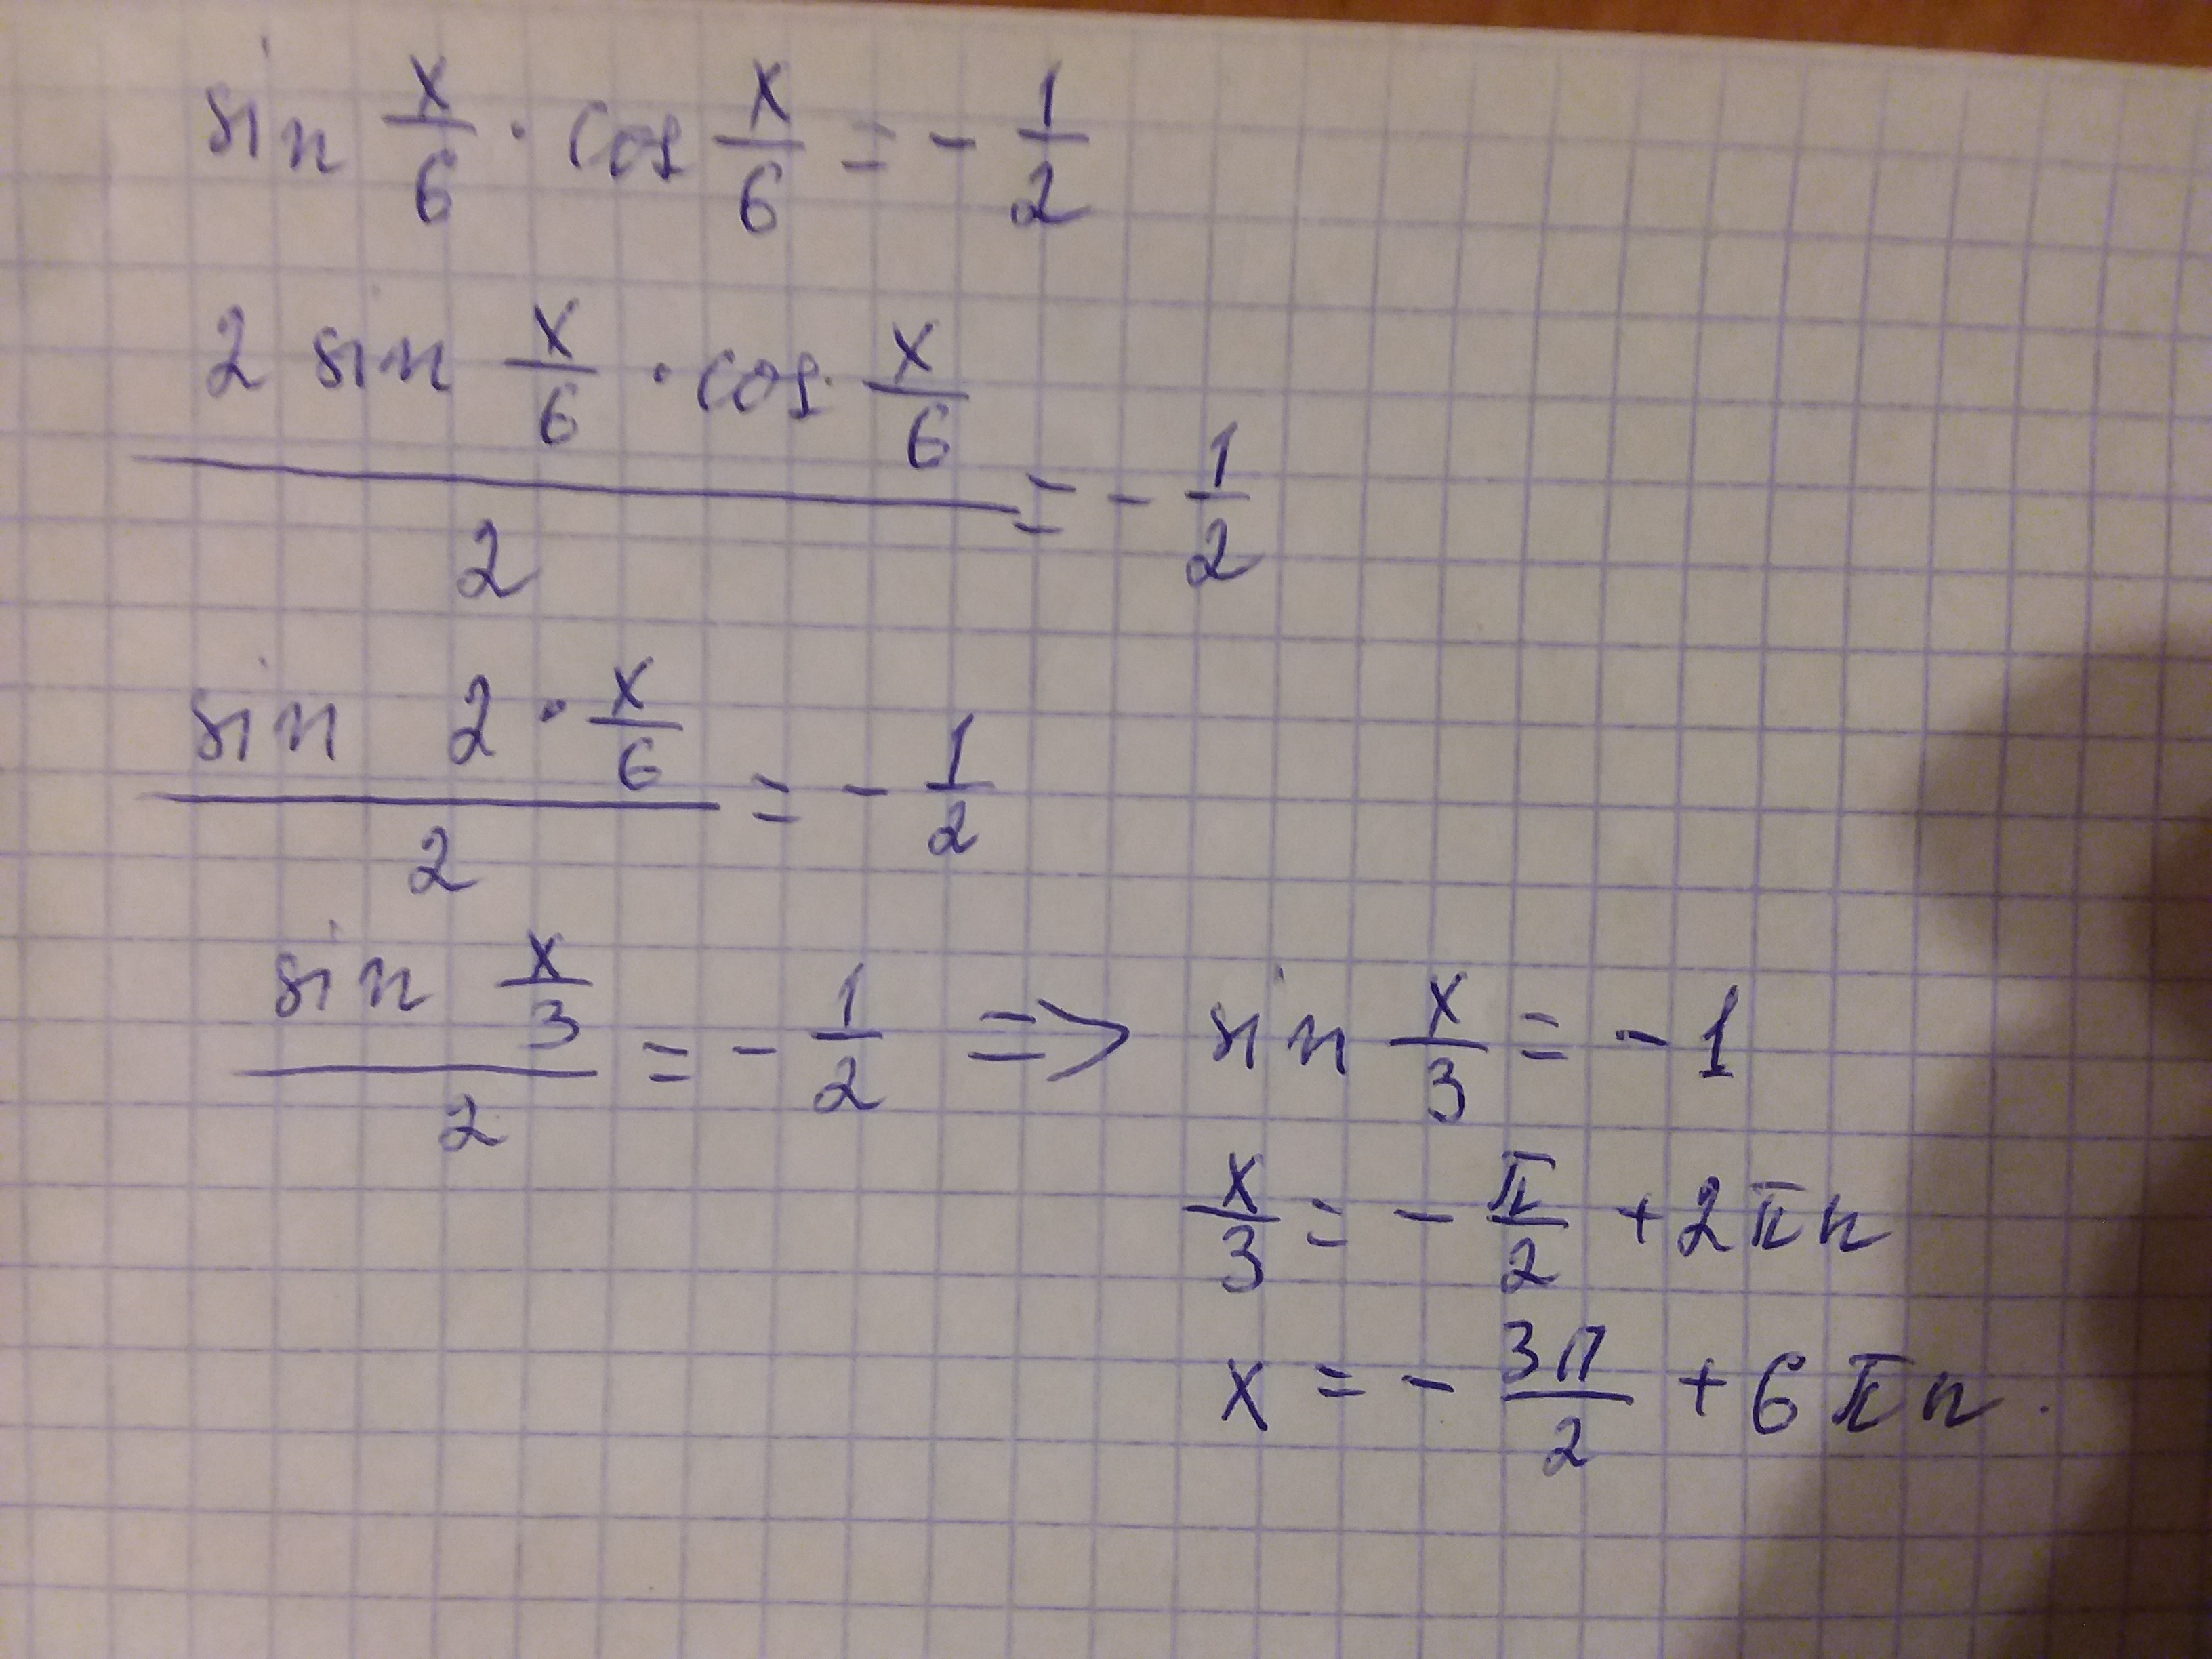 sin x/6 · cos x/6 = - 1/2
(2 sin x/6 · cos x/6)/2 = - 1/2
(sin 2 · x/6)/2 = - 1/2
(sin x/3)/2 = - 1/2 => sin x/3 = - 1
x/3 = - π/2 + 2πn
x = - 3π/2 + 6πn.